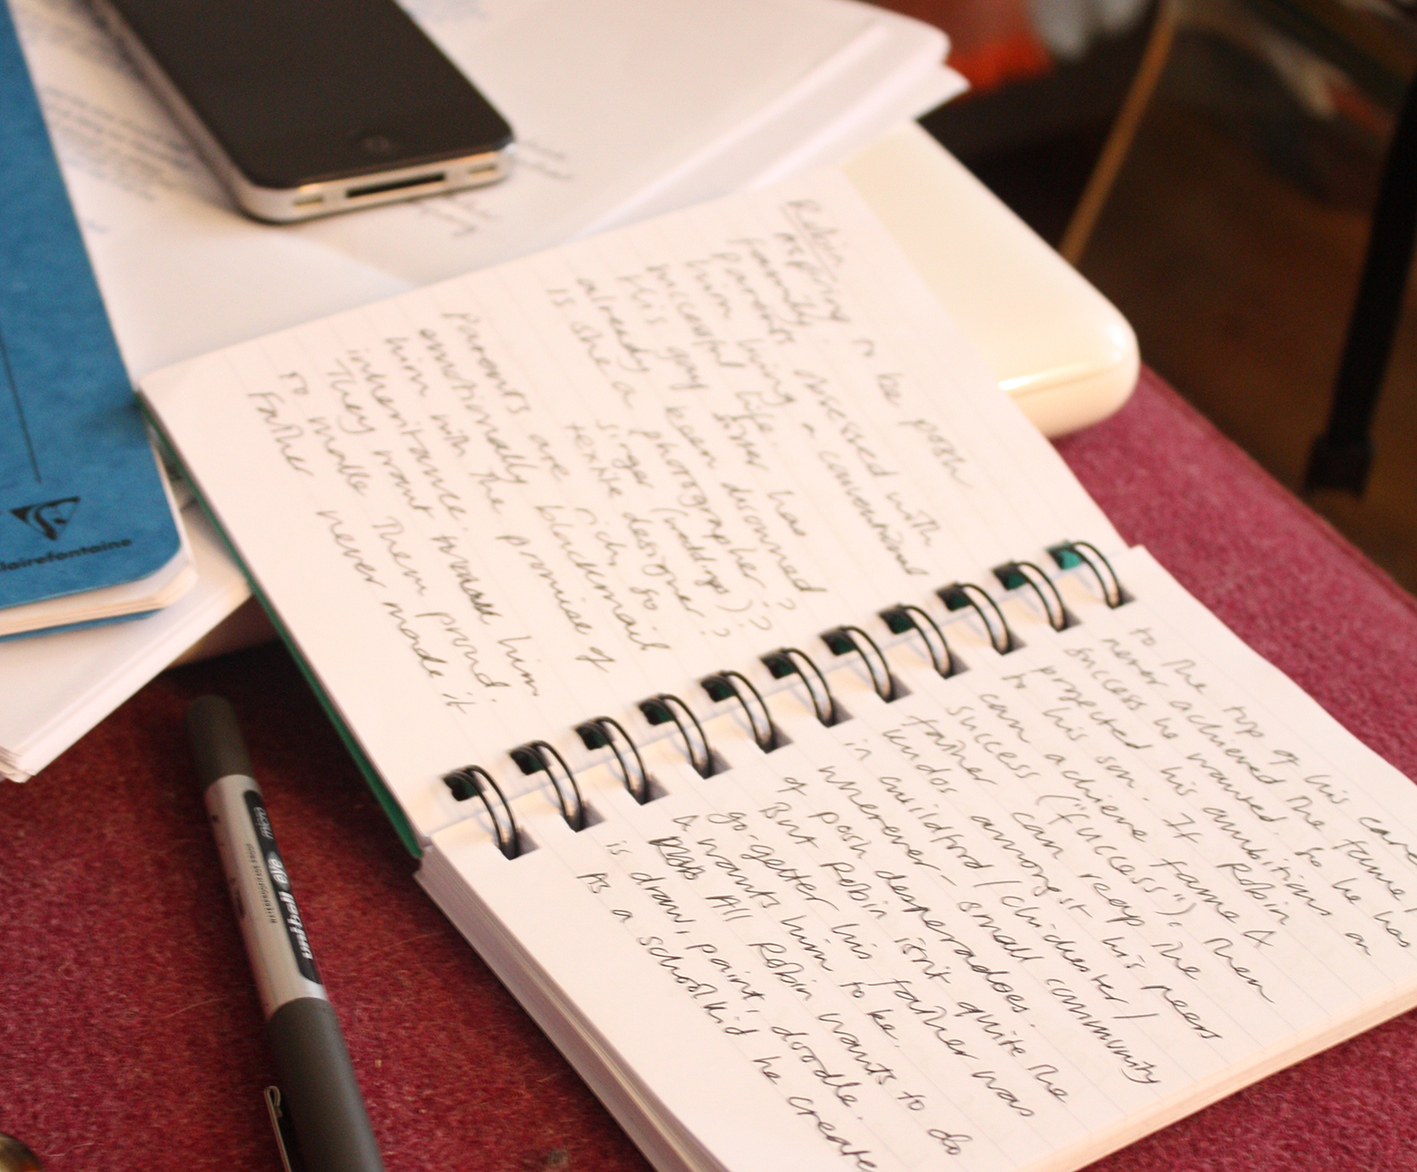 Robin
aspiring to be posh
family. obsessed with
Parents a conventional
him living
successful life.
His gay lover has
already been disowned?
is she a photographer?
singer (weddings)?
textile designer?
Parents are rich, so
emotionally blackmail
him with the promise of
inheritance.
They want him
to make them proud.
Father never made it
to the top of his career,
never achieved the fame/
success he wanted. So he has
projected his ambitions on
to his son. If Robin
can achieve fame &
success ("fuccess"), then
father can reap the
kudos amongst his peers
in Guildford/Chichester/
wherever – small community
of posh desperadoes.
But Robin isn't quite the
go-getter his father was
& wants him to be.
All Robin wants to do
is draw, paint, doodle.
As a schoolkid he create
Clairefontaine
uni-ball eye
micro